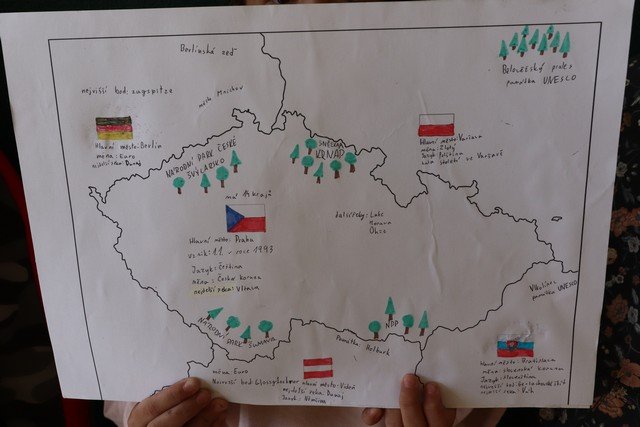 Berlínská zeď
nejvišší bod: zugspitze
město Mnichov
Hlavní město-Berlín
měna: Euro
nejdelší řeka: Dunaj
NÁRODNÍ PARK ČESKÉ
ŠVÝCARSKO
SNĚŽKA
KRNAP
Bělověžský prales
památka UNESCO
Hlavní město: Varšava
měna: Zlotý
Jazyk: Polština
ve Varšavě
má 14 krajů
Hlavní město: Praha
vznik: 1.1. v roce 1993
Jazyk: čeština
měna: Česká koruna
nejdelší řeka: Vltava
další řeky: Labe
Morava
Ohře
Vlkolínec
památka UNESCO
NÁRODNÍ PARK ŠUMAVA
NDP
Památka Holburk
měna Euro
Nejvišší bod: Glossglockner
hlavní město: Vídeň
nejdelší řeka: Dunaj
Jazyk: Němčina
Hlavní město: Bratislava
měna: slovenská koruna
Jazyk: slovenština
nejdelší řeka: Váh